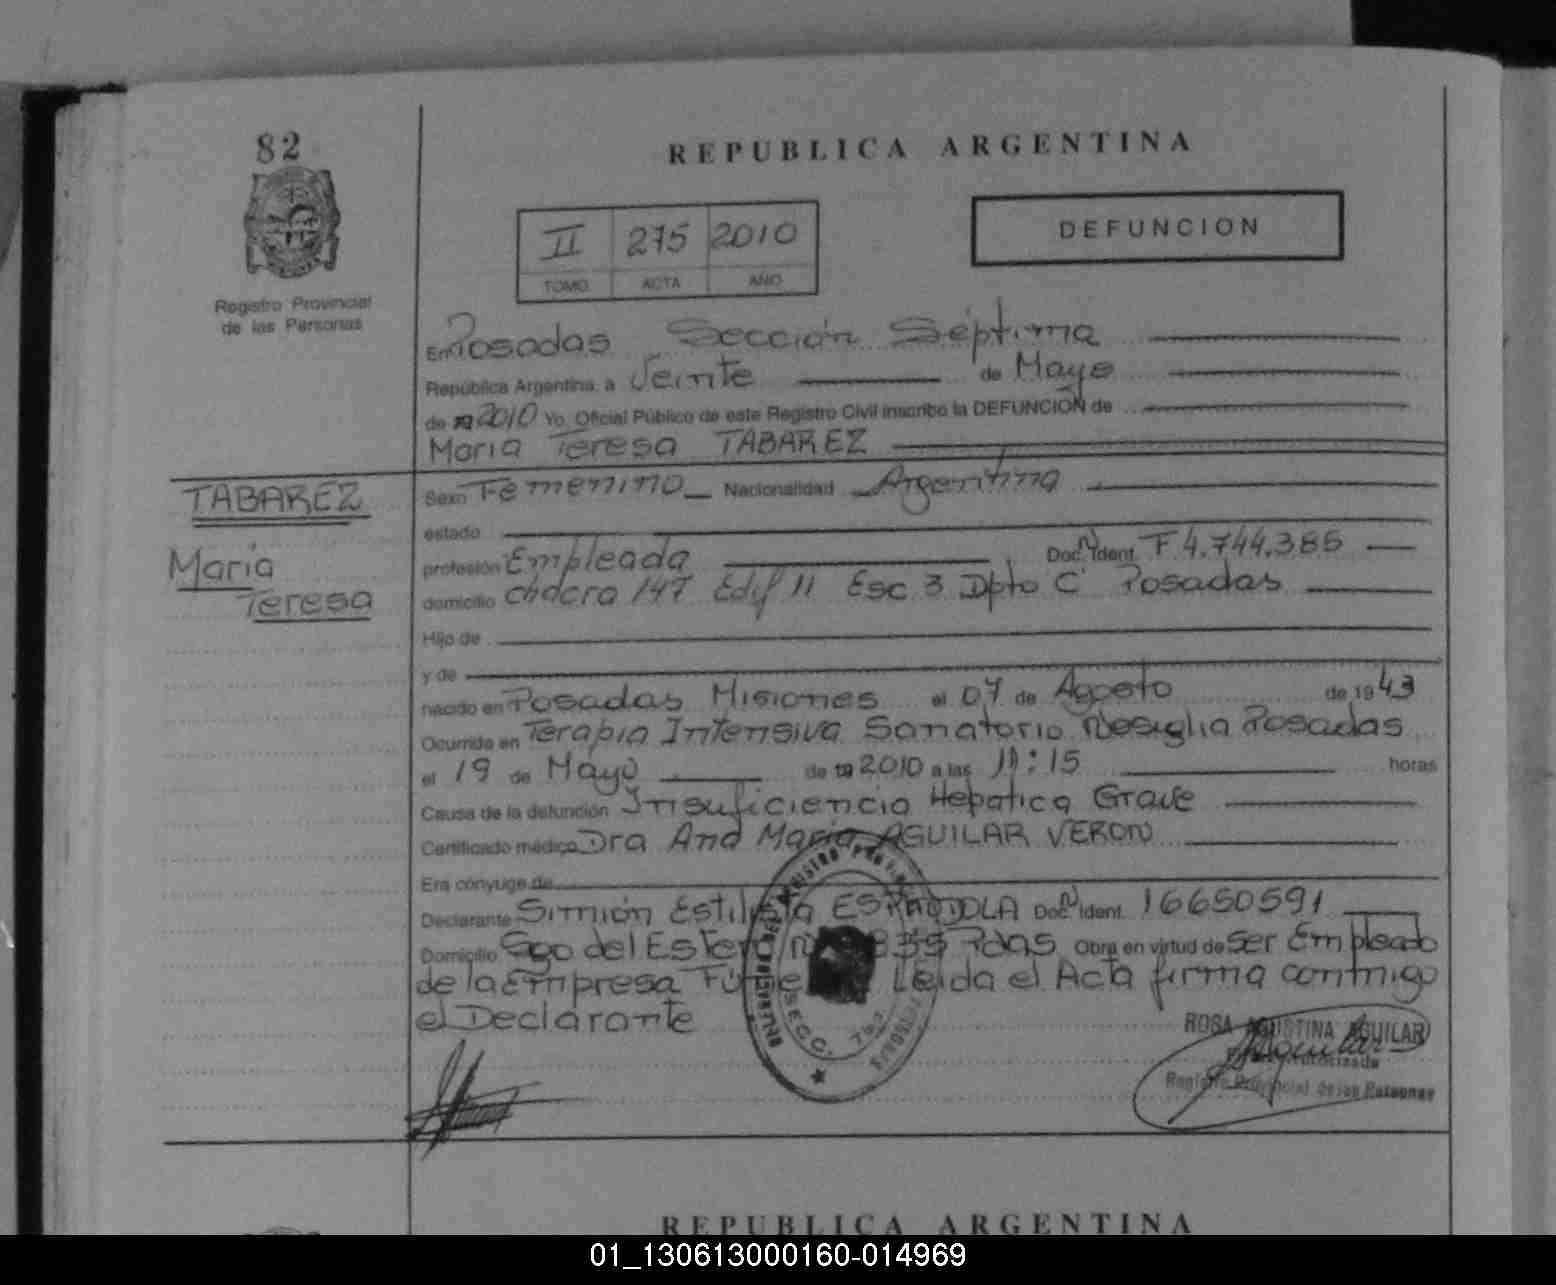 82
Registro Provincial
de las Personas
REPUBLICA ARGENTINA
II 275 2010
TOMO ACTA AÑO
DEFUNCION
En Posadas Sección Séptima
República Argentina, a Veinte de Mayo
de 2010 Yo, Oficial Público de este Registro Civil inscribo la DEFUNCIÓN de
Maria Teresa TABAREZ
TABAREZ
Maria
Teresa
Sexo Femenino Nacionalidad Argentina
estado
profesión Empleada Doc. Nº Ident. F 4.744.385
domicilio chacra 147 Edif 11 Esc 3 Dpto C Posadas
Hijo de
y de
nacido en Posadas Misiones el 07 de Agosto de 1943
Ocurrida en Terapia Intensiva Sanatorio Posadas
el 19 de Mayo de 2010 a las 11:15 horas
Causa de la defunción Insuficiencia Hepatica Grave
Certificado médico Dra Ana Maria AGUILAR VERON
Era cónyuge de
Declarante Simión ESPINDOLA Doc. Nº Ident. 16650591
Domicilio Sgo del Estero Pdas Obra en virtud de Ser Empleado
de la Empresa Leida el Acta firma conmigo
el Declarante
SECC. 7ma.
ROSA AGUSTINA AGUILAR
Registro Provincial de las Personas
REPUBLICA ARGENTINA
01_130613000160-014969